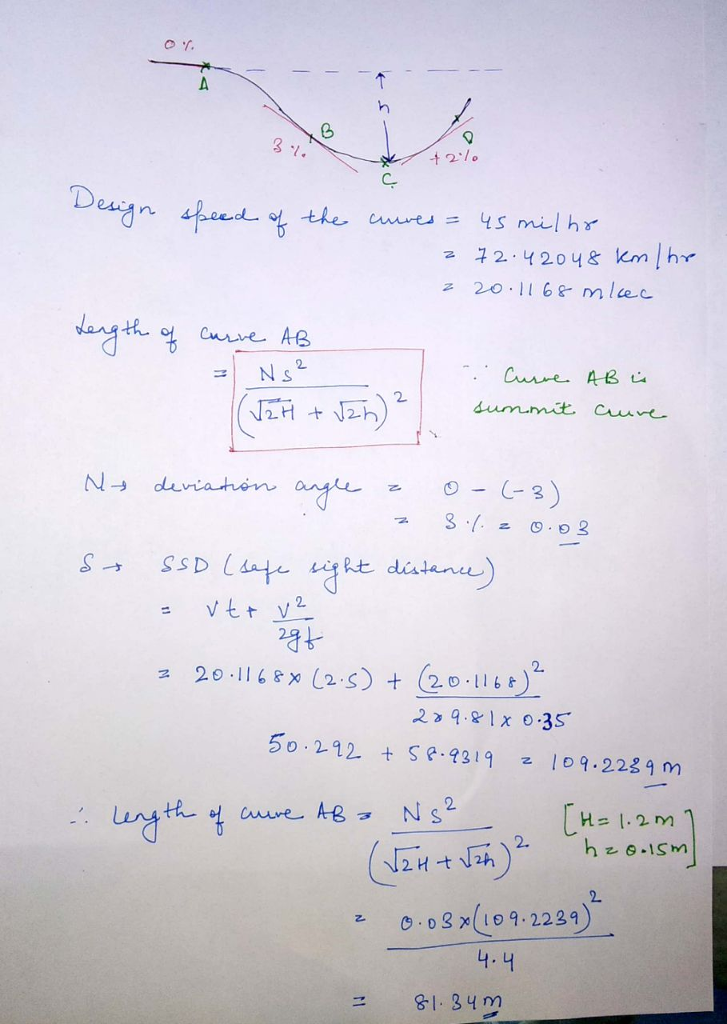 0 %
A
h
B
3 %
D
+2%
C
Design speed of the curves = 45 mi/hr
= 72.42048 km/hr
= 20.1168 m/sec
Length of curve AB
= NS² / (√2H + √2h)²
∵ Curve AB is
summit curve
N → deviation angle = 0 - (-3)
= 3 % = 0.03
S → SSD (safe sight distance)
= vt + v² / 2gf
= 20.1168 x (2.5) + (20.1168)² / 2x9.81x0.35
50.292 + 58.9319 = 109.2239 m
∴ Length of curve AB = NS² / (√2H + √2h)²
[H = 1.2 m
h = 0.15m]
= 0.03 x (109.2239)² / 4.4
= 81.34 m